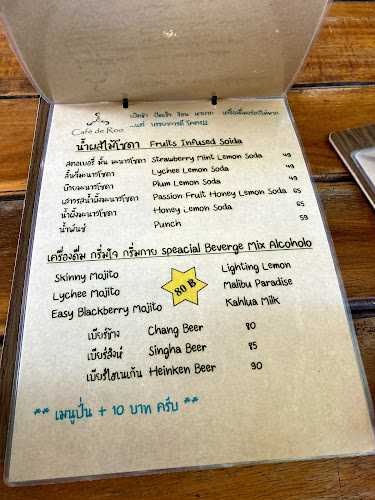 Café de Roo
เปิดช้า ปิดเร็ว ร้อน หายาก เครื่องดื่มอร่อยไม่มาก
...แต่ บรรยากาศดี โคตร!!
น้ำผลไม้โซดา Fruits Infused Soida
สตอเบอรี่ มิ้น มะนาวโซดา Strawberry Mint Lemon Soda 49
ลิ้นจี่มะนาวโซดา Lychee Lemon Soda 49
บ๊วยมะนาวโซดา Plum Lemon Soda 49
เสาวรสน้ำผึ้งมะนาวโซดา Passion Fruit Honey Lemon Soda 65
น้ำผึ้งมะนาวโซดา Honey Lemon Soda 65
น้ำพันซ์ Punch 59
เครื่องดื่ม กรึ่มใจ กรึ่มกาย speacial Beverge Mix Alcoholo
Skinny Mojito Lighting Lemon
Lychee Mojito 80 B Malibu Paradise
Easy Blackberry Mojito Kahlua Milk
เบียร์ช้าง Chang Beer 80
เบียร์สิงห์ Singha Beer 85
เบียร์ไฮเนเก้น Heinken Beer 90
** เมนูปั่น + 10 บาท ครับ **